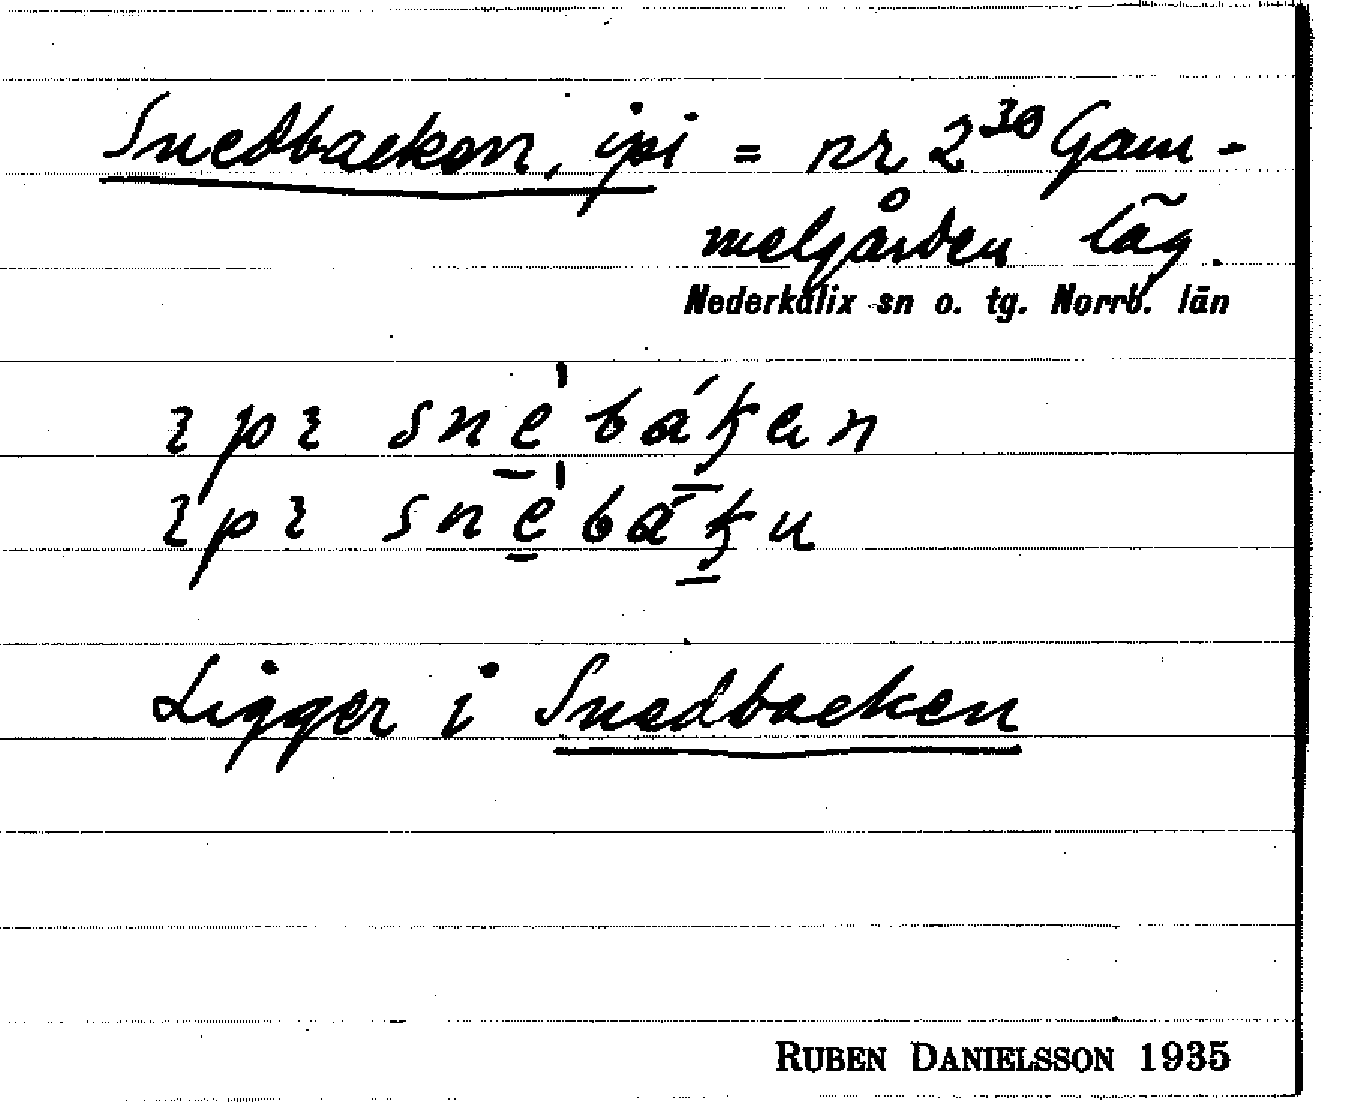 Snedbacken, ipi = nr 2³⁰ Gam-
melgården läg.
Nederkalix sn o. tg. Norrb. län
ɩpɩ snè'bákan
ɩpɩ snè'báku
Ligger i Snedbacken
RUBEN DANIELSSON 1935